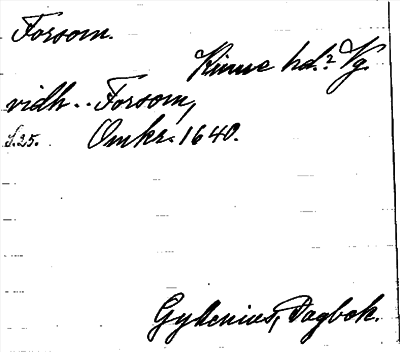 Forsom.
Kinne hd.? Vg.
vidh .. Forsom,
S. 25. Omkr. 1640.
Gyllenius, Dagbok.